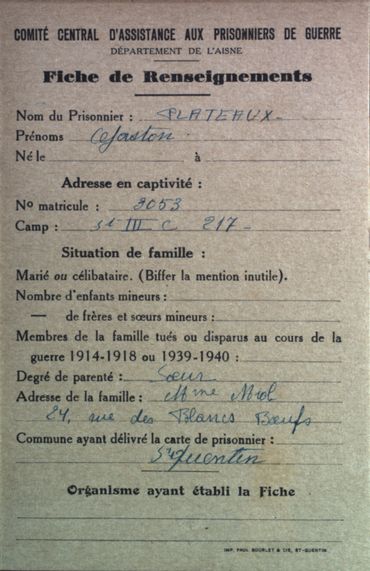 COMITÉ CENTRAL D'ASSISTANCE AUX PRISONNIERS DE GUERRE
DÉPARTEMENT DE L'AISNE
Fiche de Renseignements
Nom du Prisonnier : PLATEAUX
Prénoms Gaston
Né le à
Adresse en captivité :
No matricule : 2053
Camp : st III C 217
Situation de famille :
Marié ou célibataire. (Biffer la mention inutile).
Nombre d'enfants mineurs :
— de frères et sœurs mineurs :
Membres de la famille tués ou disparus au cours de la
guerre 1914-1918 ou 1939-1940 :
Degré de parenté : Sœur
Adresse de la famille : Mme
24, rue des Blancs Bœufs
Commune ayant délivré la carte de prisonnier :
St Quentin
Organisme ayant établi la Fiche
IMP. PAUL BOURLET & CIE, ST-QUENTIN